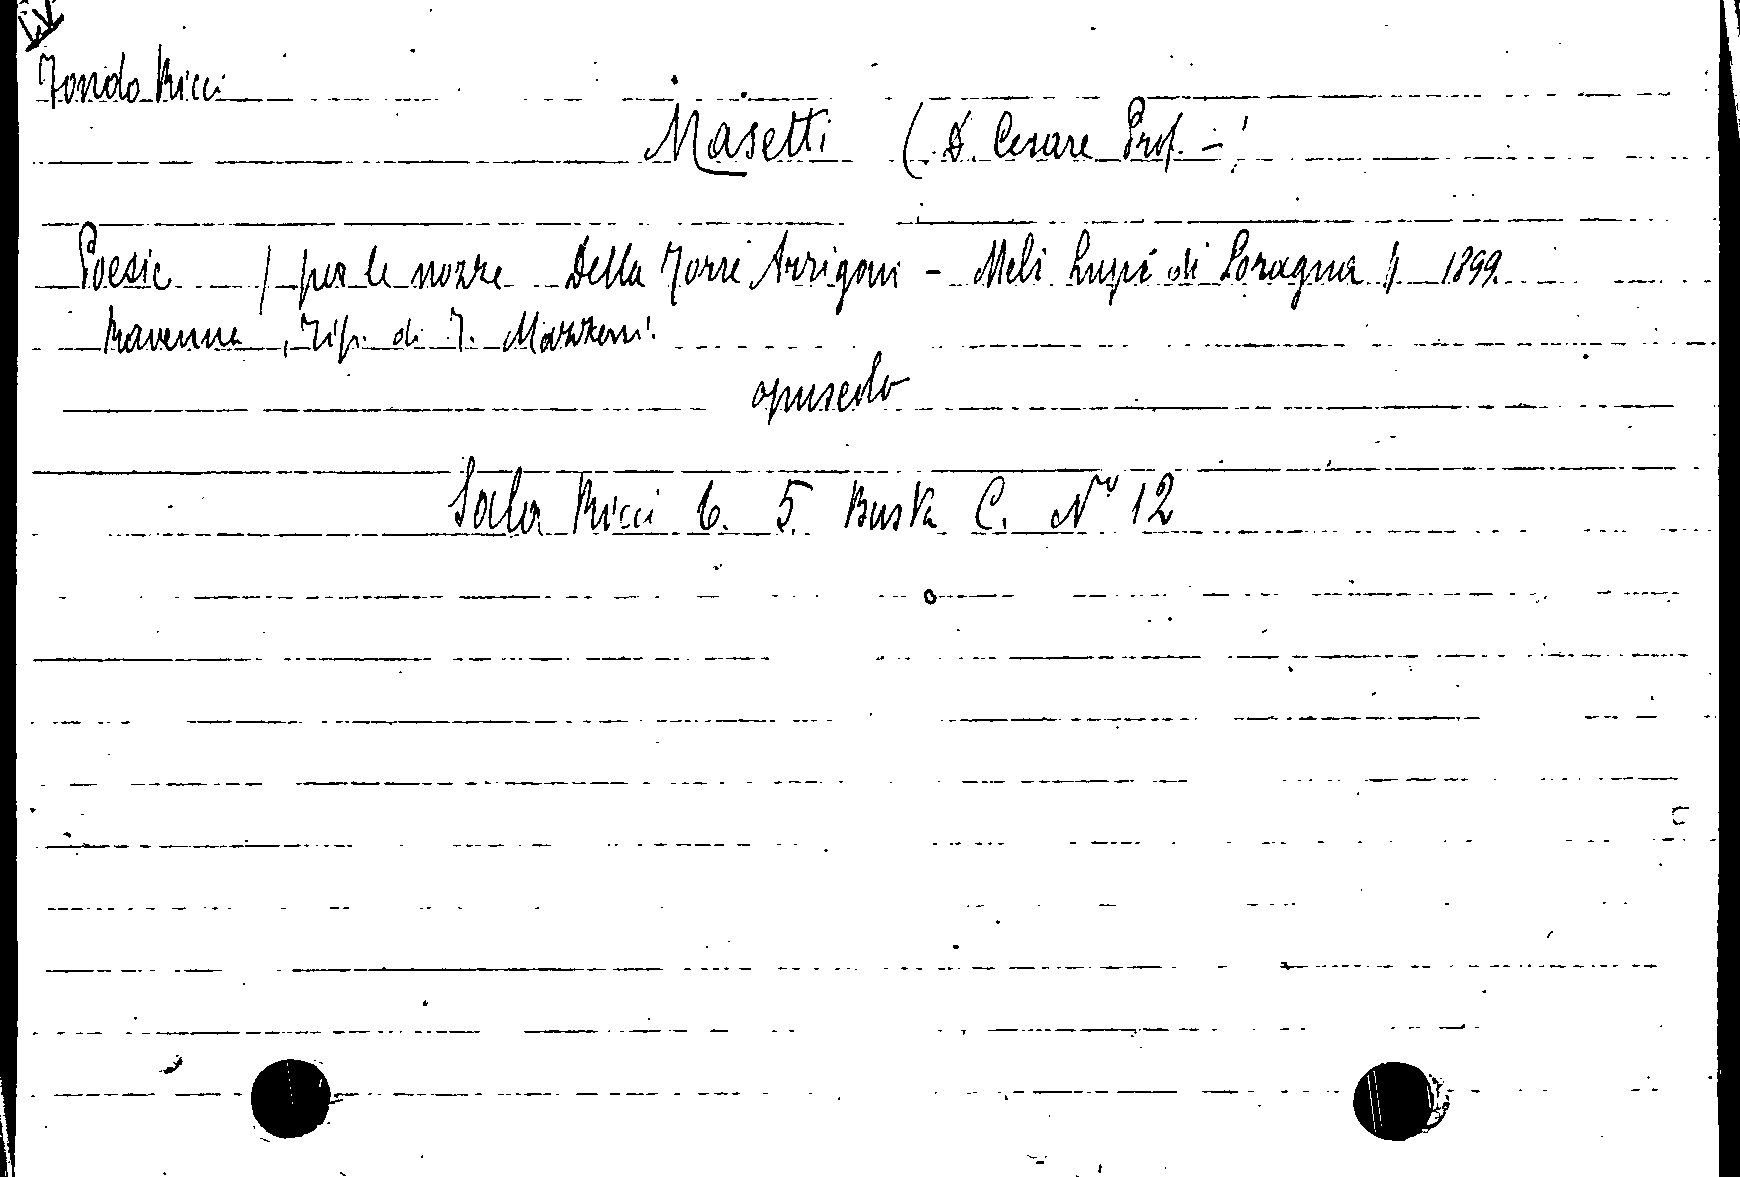 Fondo Ricci
Masetti ( D. Cesare Prof. -
Poesie / per le nozze Della Torre Arrigoni - Meli Lupi di Soragna / 1899.
Ravenna, Tip. di F. Marzzeni.
opuscolo
Sala Ricci 6. 5. Busta C. N° 12